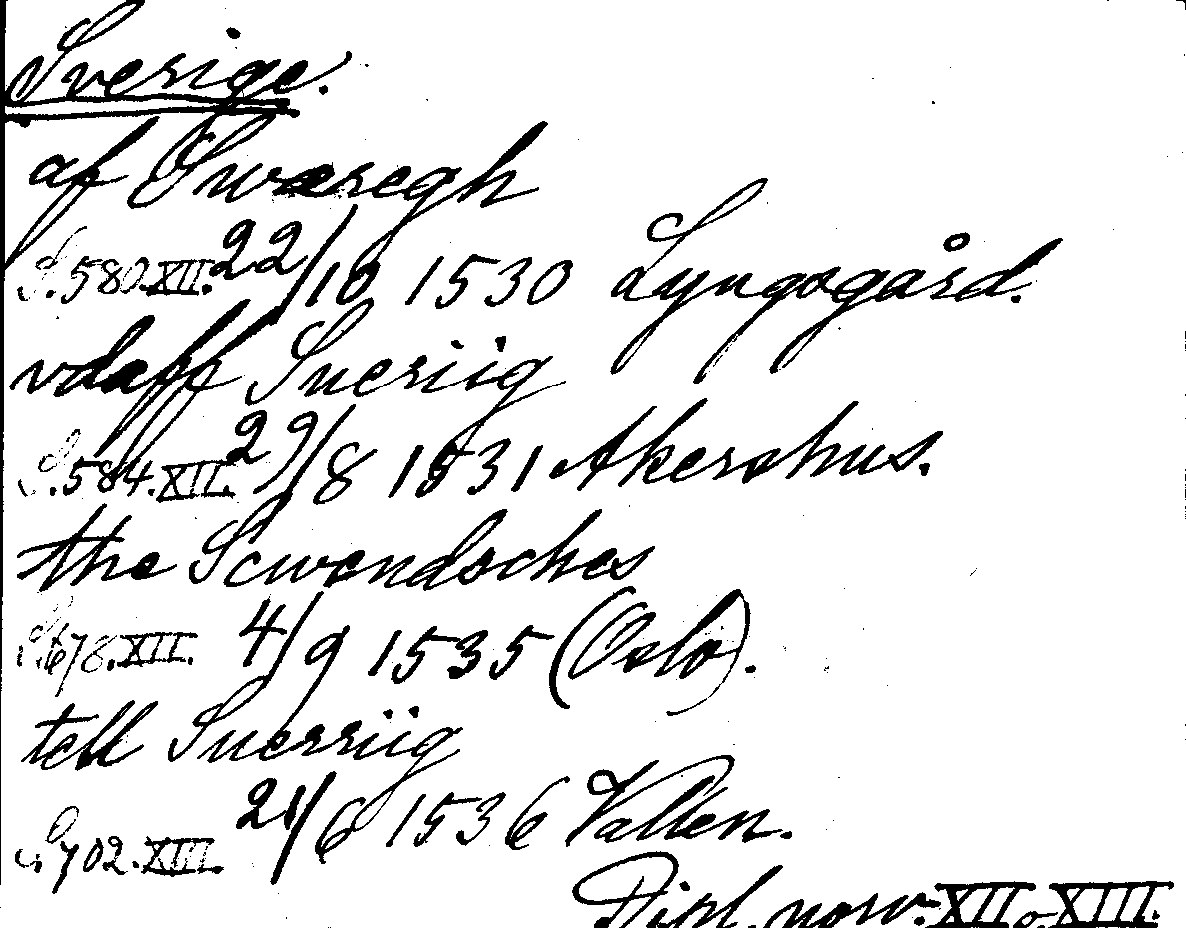 Sverige.
af Swæregh
S. 580. XII. 22/10 1530 Lyngsgård.
vdaff Sueriig
S. 584. XII. 29/8 1531 Akershus.
the Scwendsches
S. 678. XII. 4/9 1535 (Oslo).
tell Suerriig
S. 702. XIII. 21/6 1536 Vallen.
Dipl. norv. XII o. XIII.